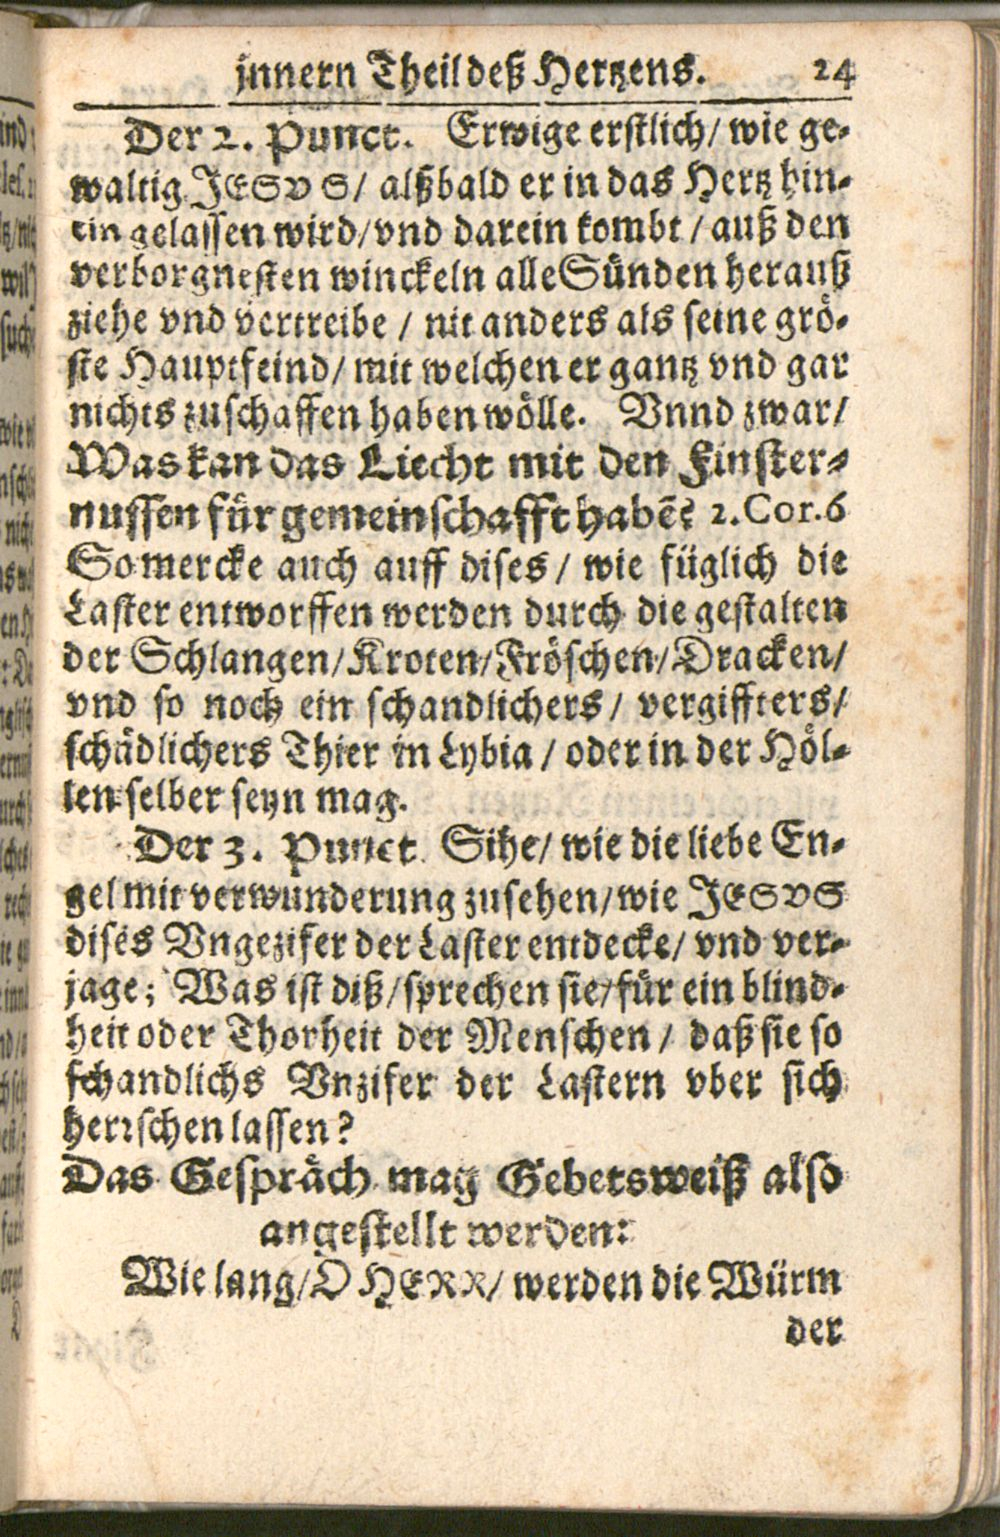 innern Theil deß Hertzens. 24
Der 2. Punct. Erwige erstlich/ wie ge-
waltig JESVS/ alßbald er in das Hertz hin-
ein gelassen wird/ vnd darein kombt / auß den
verborgnesten winckeln alle Sünden herauß
ziehe vnd vertreibe / nit anders als seine grö-
ste Hauptfeind/ mit welchen er gantz vnd gar
nichts zuschaffen haben wölle. Vnnd zwar/
Was kan das Liecht mit den Finster-
nussen für gemeinschafft habē? 2. Cor. 6
So mercke auch auff dises / wie füglich die
Laster entworffen werden durch die gestalten
der Schlangen/ Kroten/ Fröschen/ Dracken/
vnd so noch ein schandlichers / vergiffters/
schädlichers Thier in Lybia / oder in der Höl-
len selber seyn mag.
Der 3. Punct. Sihe/ wie die liebe En-
gel mit verwunderung zusehen/ wie JESVS
dises Vngezifer der Laster entdecke/ vnd ver-
jage; Was ist diß/ sprechen sie/ für ein blind-
heit oder Thorheit der Menschen / daß sie so
schandlichs Vnzifer der Lastern vber sich
herrschen lassen?
Das Gespräch mag Gebetsweiß also
angestellt werden:
Wie lang/ O HERR/ werden die Würm
der